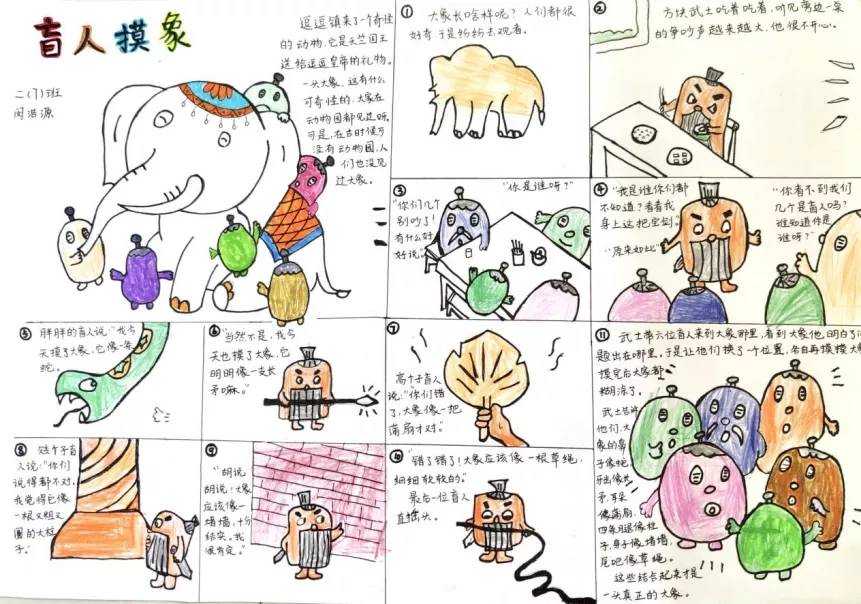 盲人摸象
二(7)班
闵浩源
逗逗镇来了个奇怪
的动物,它是天竺国王
送给逗逗皇帝的礼物。
一头大象,这有什么
可奇怪的,大象在
动物园都见过呀,
可是,在古时候可
没有动物园,人
们也没见
过大象。
①
大象长啥样呢?人们都很
好奇于是纷纷去观看。
②
方块武士吃着吃着,听见旁边一桌
的争吵声越来越大,他很不开心。
③
“你们几个
别吵了!
有什么好
好说。”
“你是谁呀?”
④
“我是谁你们都
不知道?看看我
身上这把宝剑。”
“原来如此”
“你看不到我们
几个是盲人吗?
谁知道你是
谁呀?”
⑤
胖胖的盲人说:“我今
天摸了大象,它像一条
蛇。
⑥
“当然不是,我今
天也摸了大象,它
明明像一支长
矛嘛。”
⑦
高个子盲人
说:“你们错
了,大象像一把
蒲扇才对。”
⑧
矮个子盲
人说:“你们
说得都不对,
我觉得它像
一根又粗又
圆的大柱
子。”
⑨
“胡说
胡说!大象
应该像一
堵墙,十分
结实。我
很肯定。”
⑩
“错了错了!大象应该像一根草绳,
细细软软的。”
最后一位盲人
直摇头。
⑪
武士带六位盲人来到大象那里,看到大象他明白了问
题出在哪里,于是让他们换了一个位置,各自再摸摸大象
摸完后大家都
糊涂了。
武士告诉
他们,大
象的鼻
子像蛇,
牙齿像长
矛,耳朵
像蒲扇,
四条腿像柱
子,身子像墙墙,
尾巴像草绳。
这些结合起来才是
一头真正的大象。